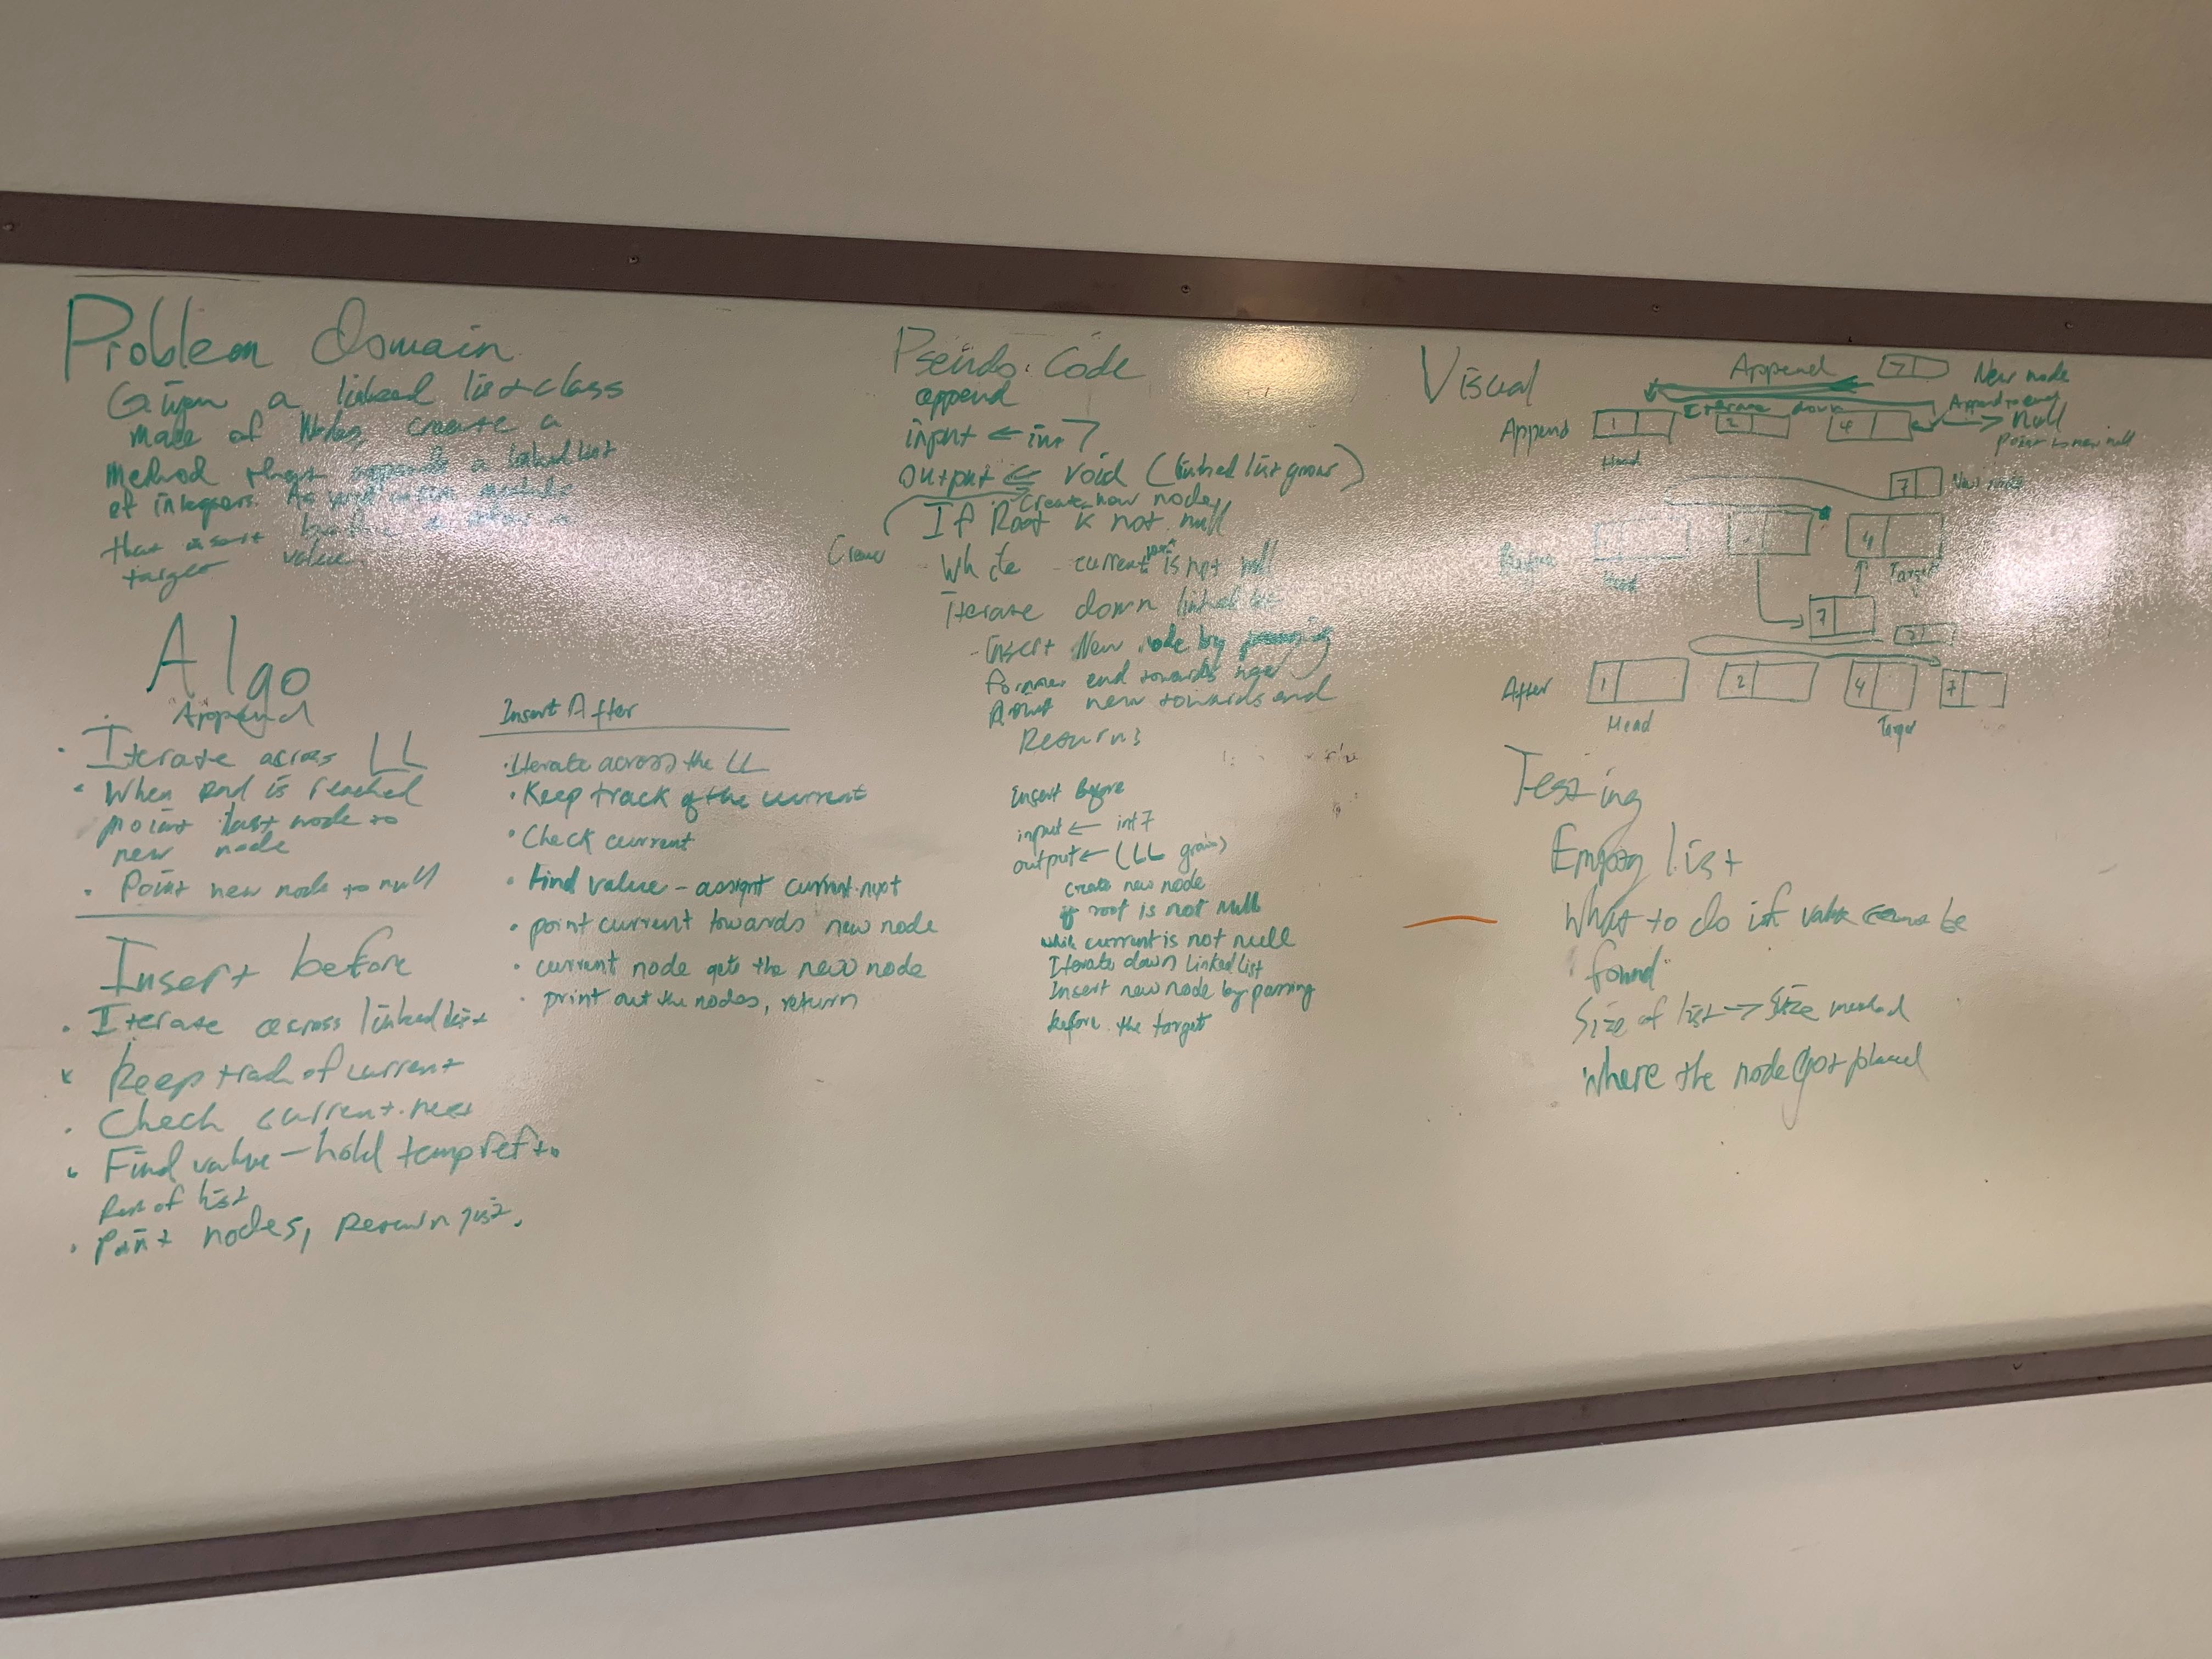 Problem domain
Given a linked list class
made of Nodes, create a
method that appends a linked list
of integers. As well
that insert before
target value
Algo
Append
Iterate across LL
When end is reached
point last node to
new node
Point new node to null
Insert before
Iterate across linked list
Keep track of current
Check current.next
Find value - hold temp ref to
Rest of list
Point nodes, Return list.
Insert After
Iterate across the LL
Keep track of the current
Check current
Find value - assignt current.next
point current towards new node
current node gets the new node
print out the nodes, return
Pseudo Code
append
input ← int 7
output ← void (linked list grows)
Create new node
If Root is not null
While current is not null
iterate down linked list
Insert New node by
former end towards new
point new towards end
Return;
Insert Before
input ← int 7
output ← (LL grows)
create new node
if root is not null
while current is not null
Iterate down Linked List
Insert new node by passing
before the target
Visual
Append 7 New node
Iterate down Append to end
Append 1 2 4 → Null
Head Point to new null
7 New node
Before 4
Head Target
7
7
After 1 2 4 7
Head Target
Testing
Empty list
What to do if value be
found
Size of list → size method
where the node got placed